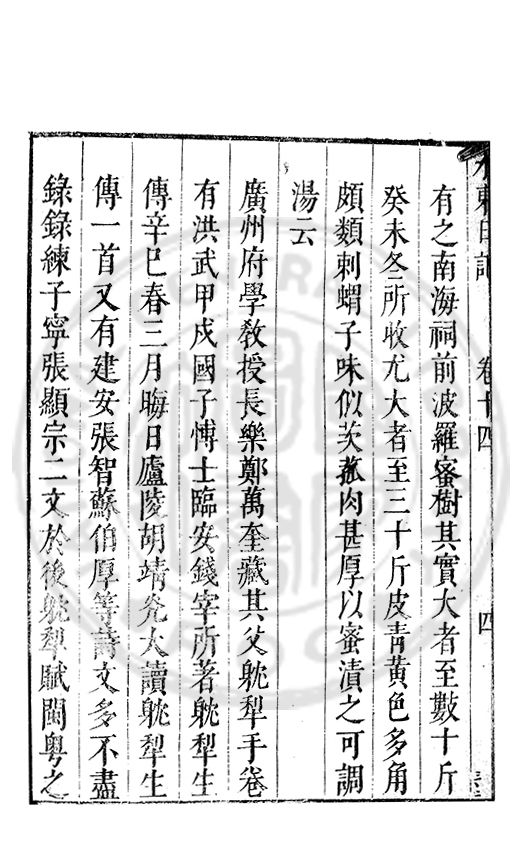 水東日記 卷十四 四
有之南海祠前波羅蜜樹其實大者至數十斤
癸未冬所收尤大者至三十斤皮青黃色多角
頗類刺蝟子味似茨菰肉甚厚以蜜漬之可調
湯云
廣州府學敎授長樂鄭萬奎藏其父躭犁手卷
有洪武甲戌國子愽士臨安錢宰所著躭犁生
傳辛巳春三月晦日廬陵胡靖㒬大讀躭犁生
傳一首又有建安張智蘇伯厚等詩文多不盡
錄錄練子寧張顯宗二文於後躭犁賦閩粤之